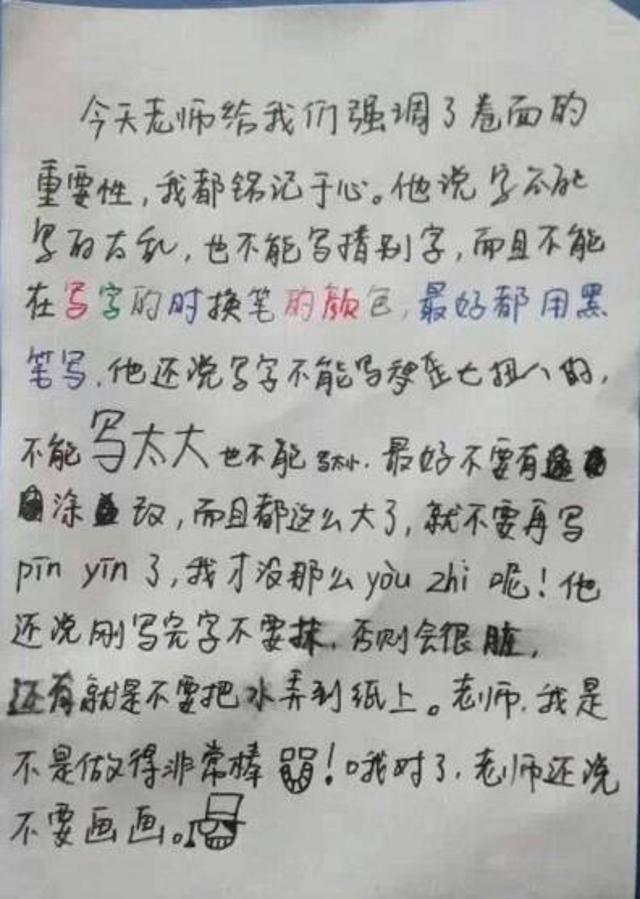 今天老师给我们强调了卷面的
重要性，我都铭记于心。他说字不能
写的太乱，也不能写措别字，而且不能
在写字的时换笔的颜色，最好都用黑
笔写，他还说写字不能写歪七扭八的，
不能写太大也不能写太小．最好不要有
涂改，而且都这么大了，就不要再写
pīn yīn了，我才没那么yòu zhi呢！他
还说刚写完字不要抹，否则会很脏，
还有就是不要把水弄到纸上。老师．我是
不是做得非常棒！哦对了，老师还说
不要画画。